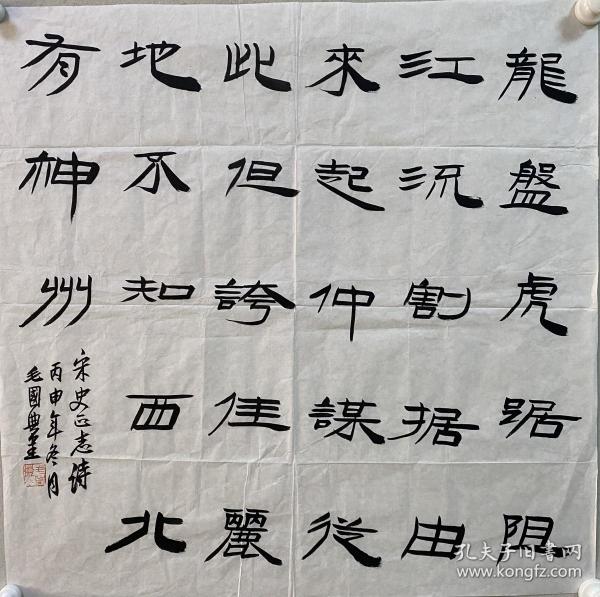 龍盤虎踞阻
江流割据由
來起仲謀從
此但誇佳麗
地不知西北
有神州
宋史正志诗
丙申年冬月
毛國典書
孔夫子旧书网
www.kongfz.com